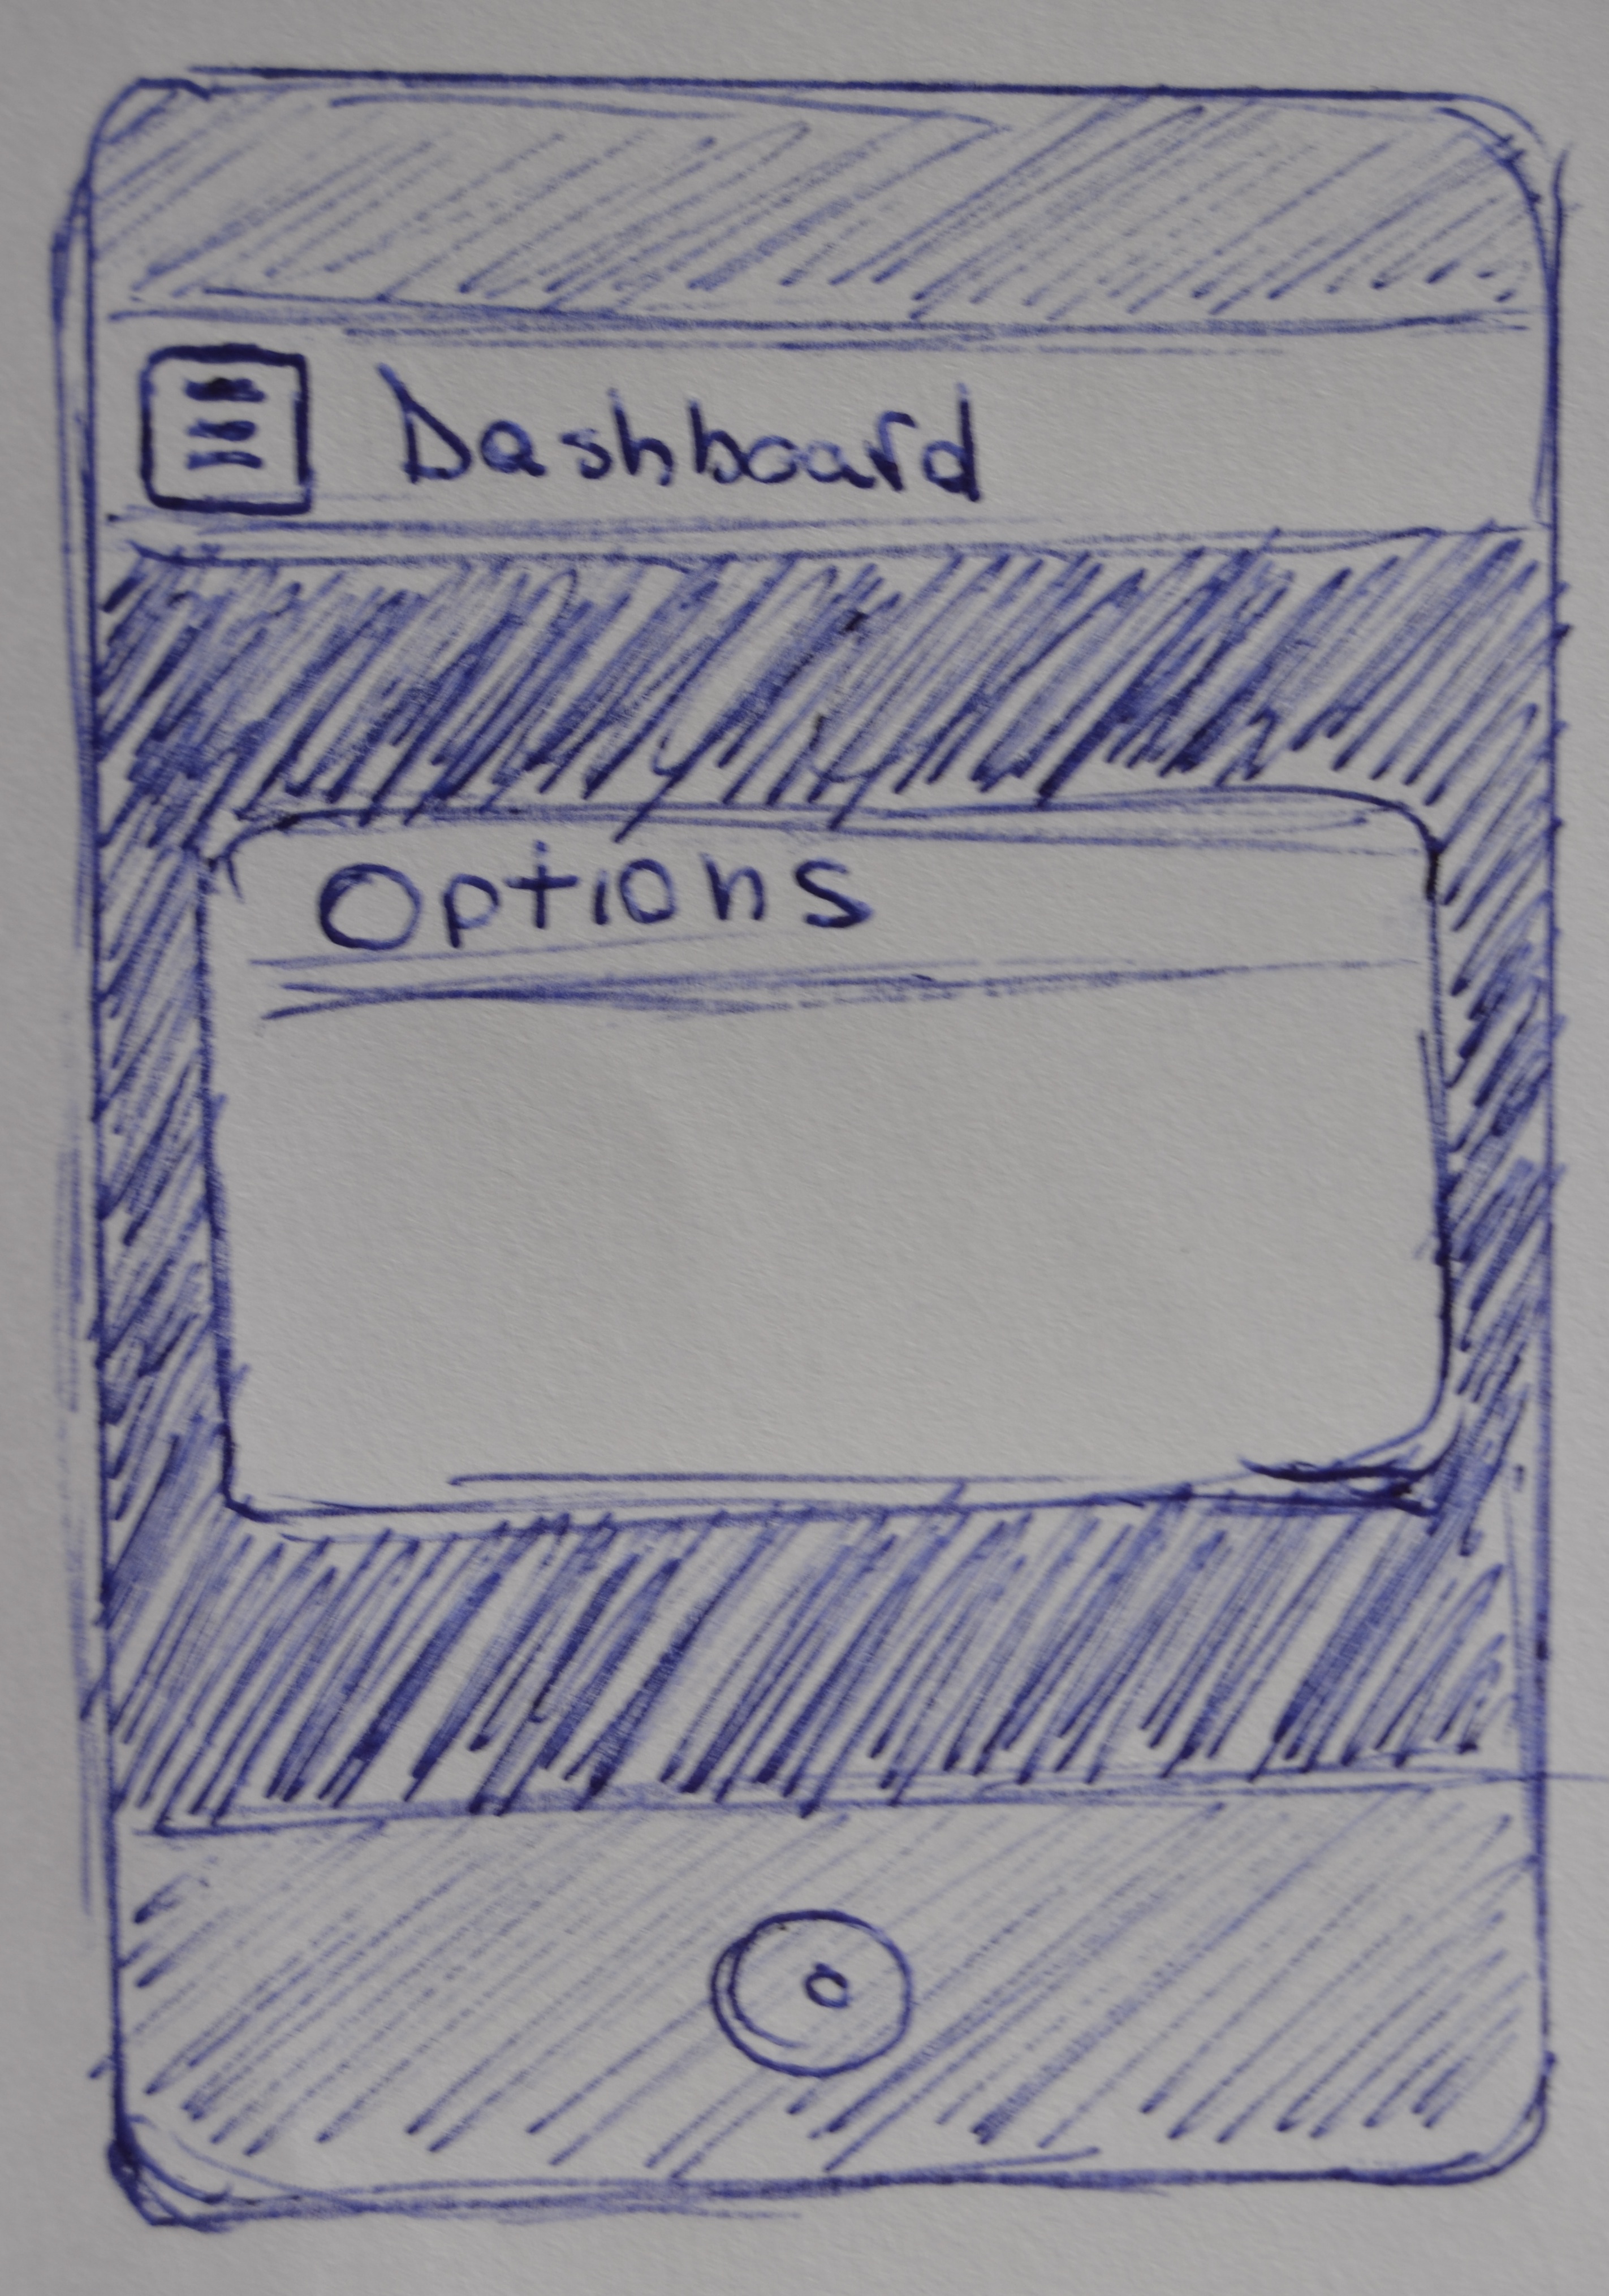 Dashboard
Options